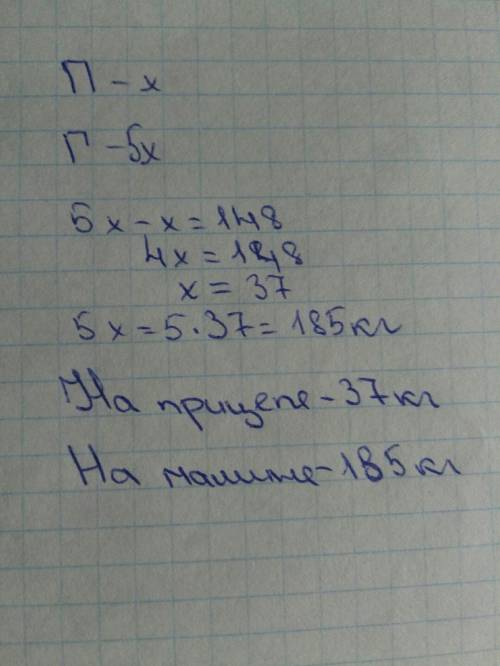 П - х
Г - 5х
5х - х = 148
4х = 148
х = 37
5х = 5 · 37 = 185кг
На прицепе - 37кг
На машине - 185кг